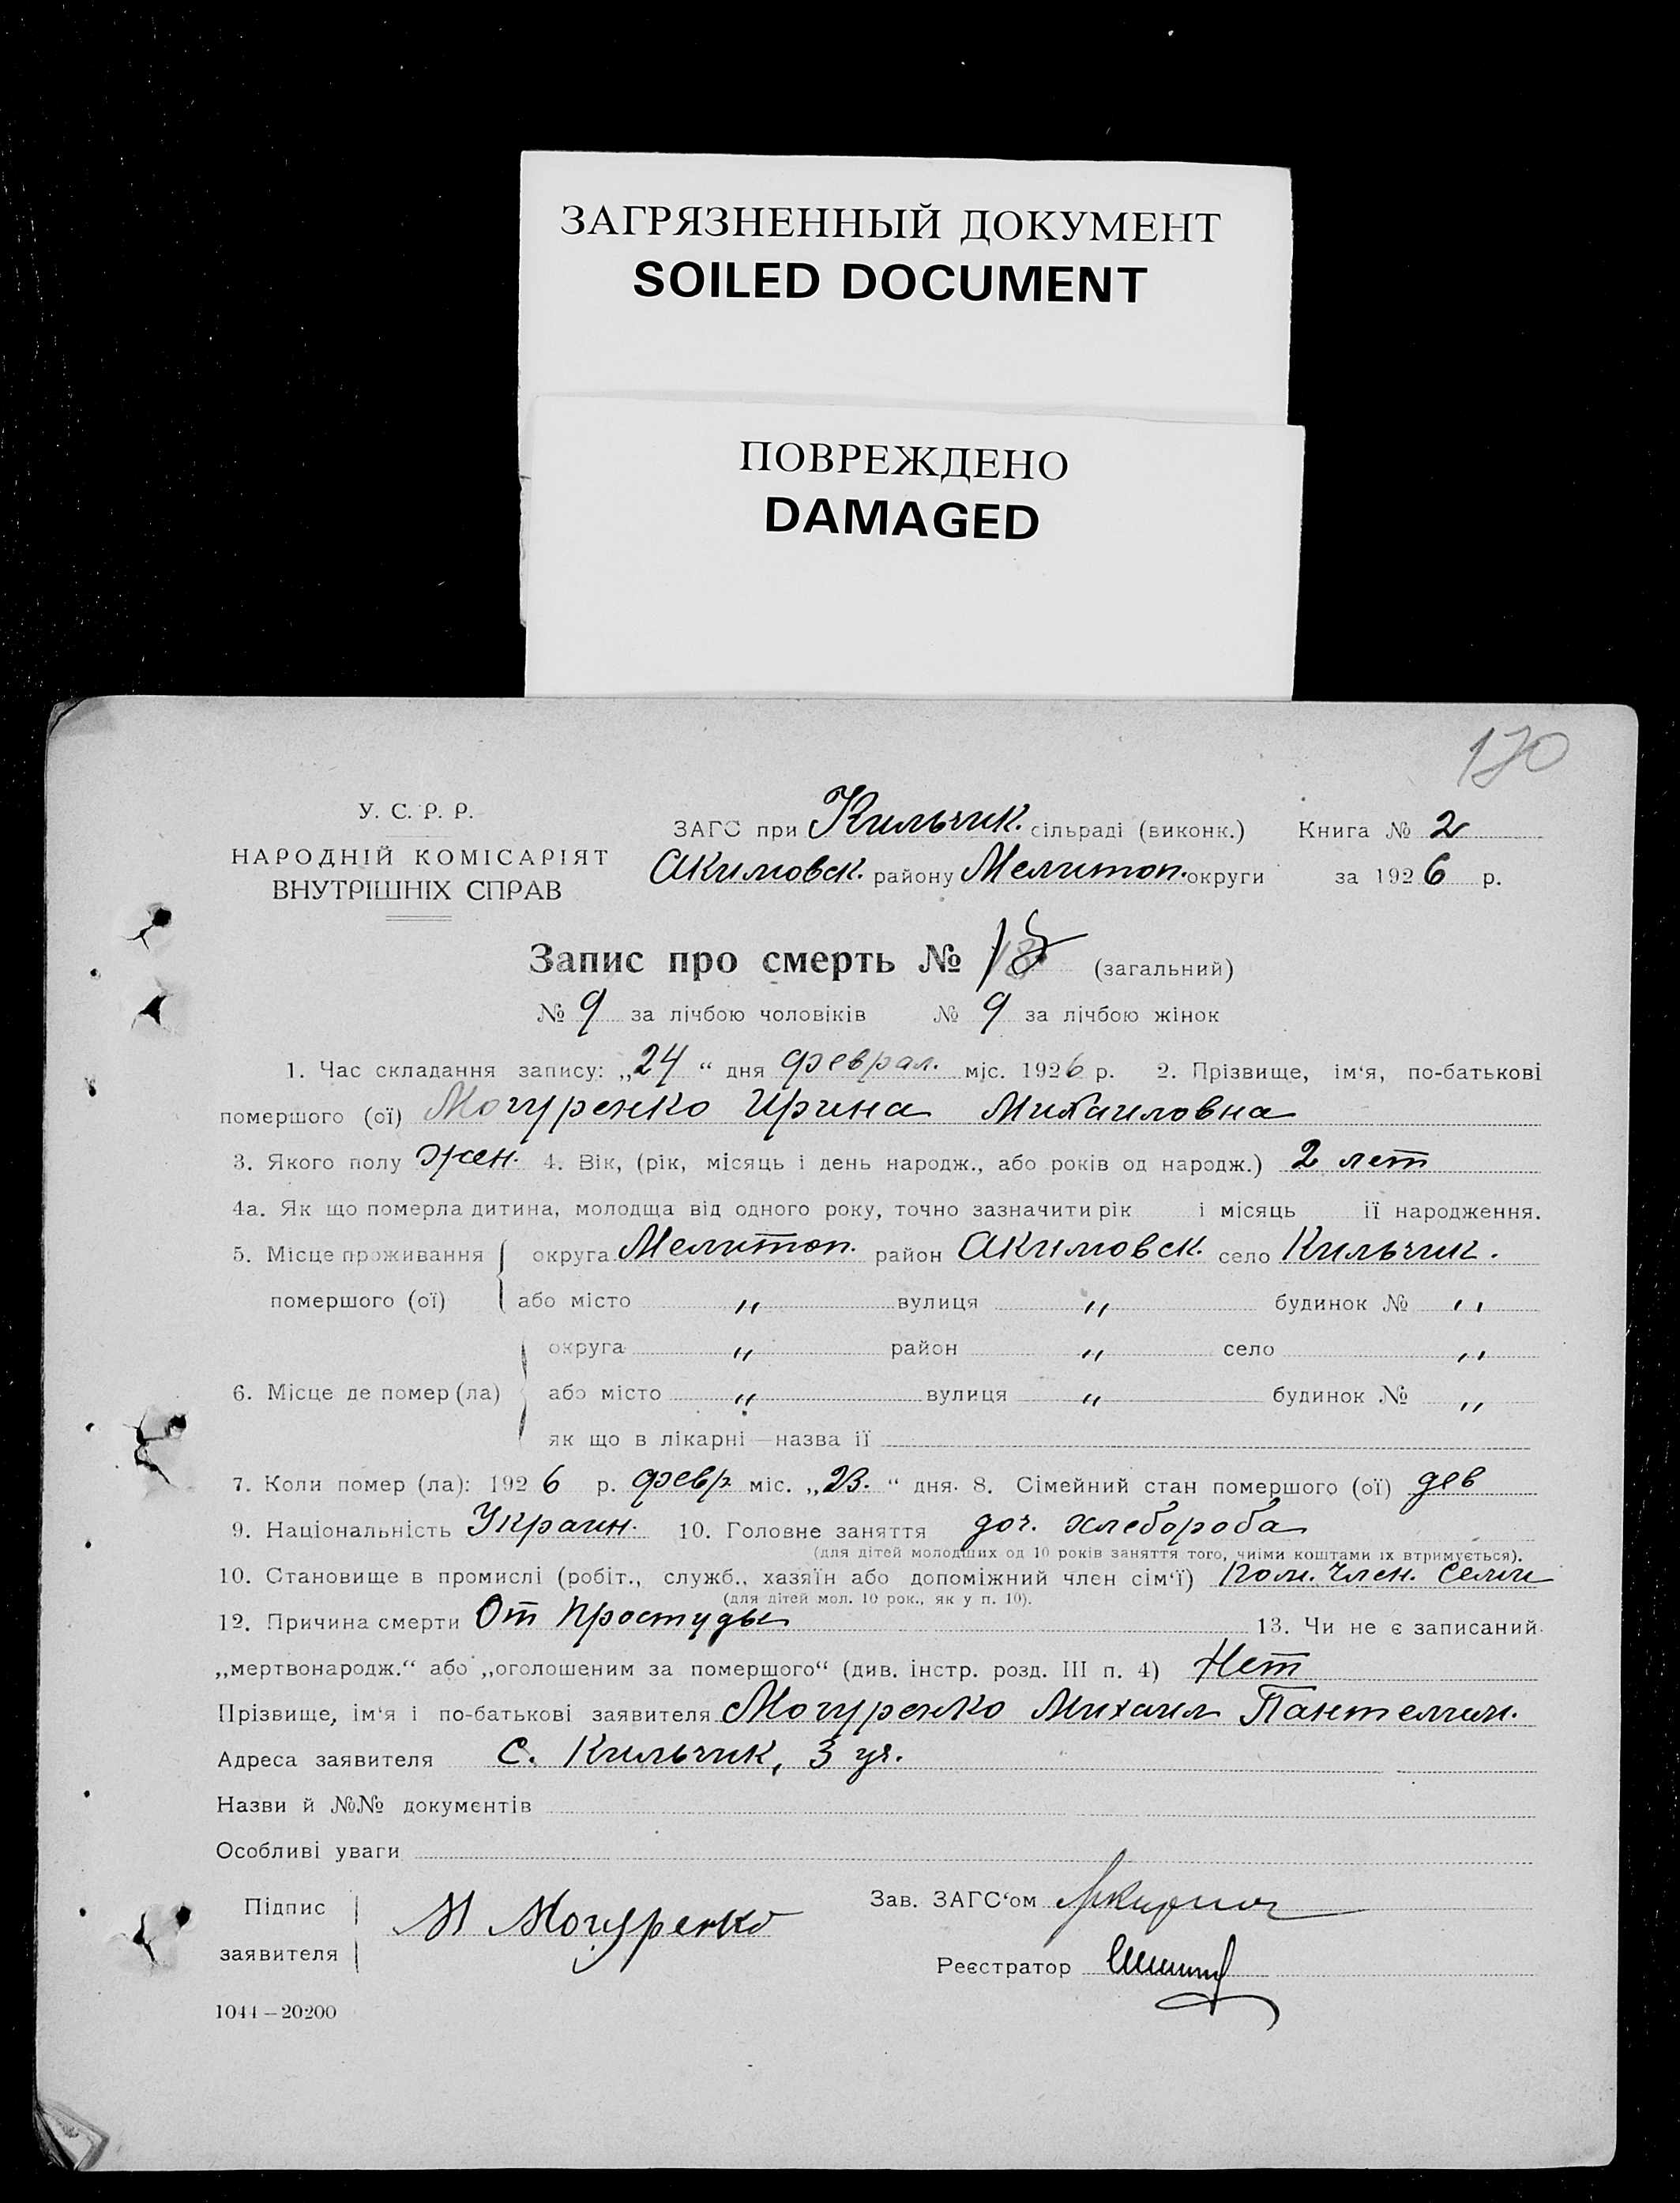 ЗАГРЯЗНЕННЫЙ ДОКУМЕНТ
SOILED DOCUMENT
ПОВРЕЖДЕНО
DAMAGED
170
У. С. Р. Р.
НАРОДНІЙ КОМІСАРІЯТ
ВНУТРІШНІХ СПРАВ
ЗАГС при Кильчик. сільраді (виконк.) Книга № 2
Акимовск. району Мелитоп. округи за 1926 р.
Запис про смерть № (загальний)
№ 9 за лічбою чоловіків № 9 за лічбою жінок
1. Час складання запису: „24 “ дня феврал. міс. 1926 р. 2. Прізвище, ім‘я, по-батькові
помершого (ої) Могуренко Ирина Михаиловна
3. Якого полу жен. 4. Вік, (рік, місяць і день народж., або років од народж.) 2 лет
4а. Як що померла дитина, молодща від одного року, точно зазначити рік і місяць її народження.
5. Місце проживання округа Мелитоп. район Акимовск. село Кильчик.
помершого (ої) або місто „ вулиця „ будинок № „
округа „ район „ село „
6. Місце де помер (ла) або місто „ вулиця „ будинок № „
як що в лікарні—назва її
7. Коли помер (ла): 1926 р. февр міс. „23. “ дня. 8. Сімейний стан помершого (ої) дев
9. Національність Украин. 10. Головне заняття доч. хлебороба
(для дітей молодших од 10 років заняття того, чиіми коштами їх втримується).
10. Становище в промислі (робіт., служб., хазяїн або допоміжний член сім‘ї) пом. член. семи
(для дітей мол. 10 рок., як у п. 10).
12. Причина смерти От простуды 13. Чи не є записаний
„мертвонародж.“ або „оголошеним за помершого“ (див. інстр. розд. III п. 4) Нет
Прізвище, ім‘я і по-батькові заявителя Могуренко Михаил Пантелеим.
Адреса заявителя с. Кильчик, 3 уч.
Назви й №№ документів
Особливі уваги
Підпис заявителя М Могуренко
Зав. ЗАГС‘ом
Реєстратор
1044—20200